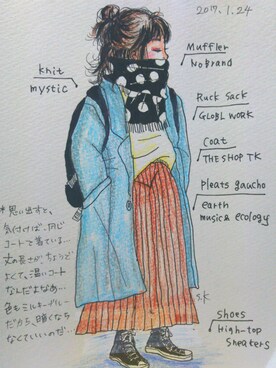 2017.1.24
Muffler
No Brand
knit
mystic
Ruck Sack
GLOBL WORK
Coat
THE SHOP TK
Pleats gaucho
earth
music & ecology
*思い出すと、
気付けば、同じ
コートを着ている…
丈の長さがちょうど
よくて、温いコート
なんだよなぁ…
色もミルキーブルー
だから、暗くなら
なくていいのだ…
S.K
Shoes
High-top
Sneakers